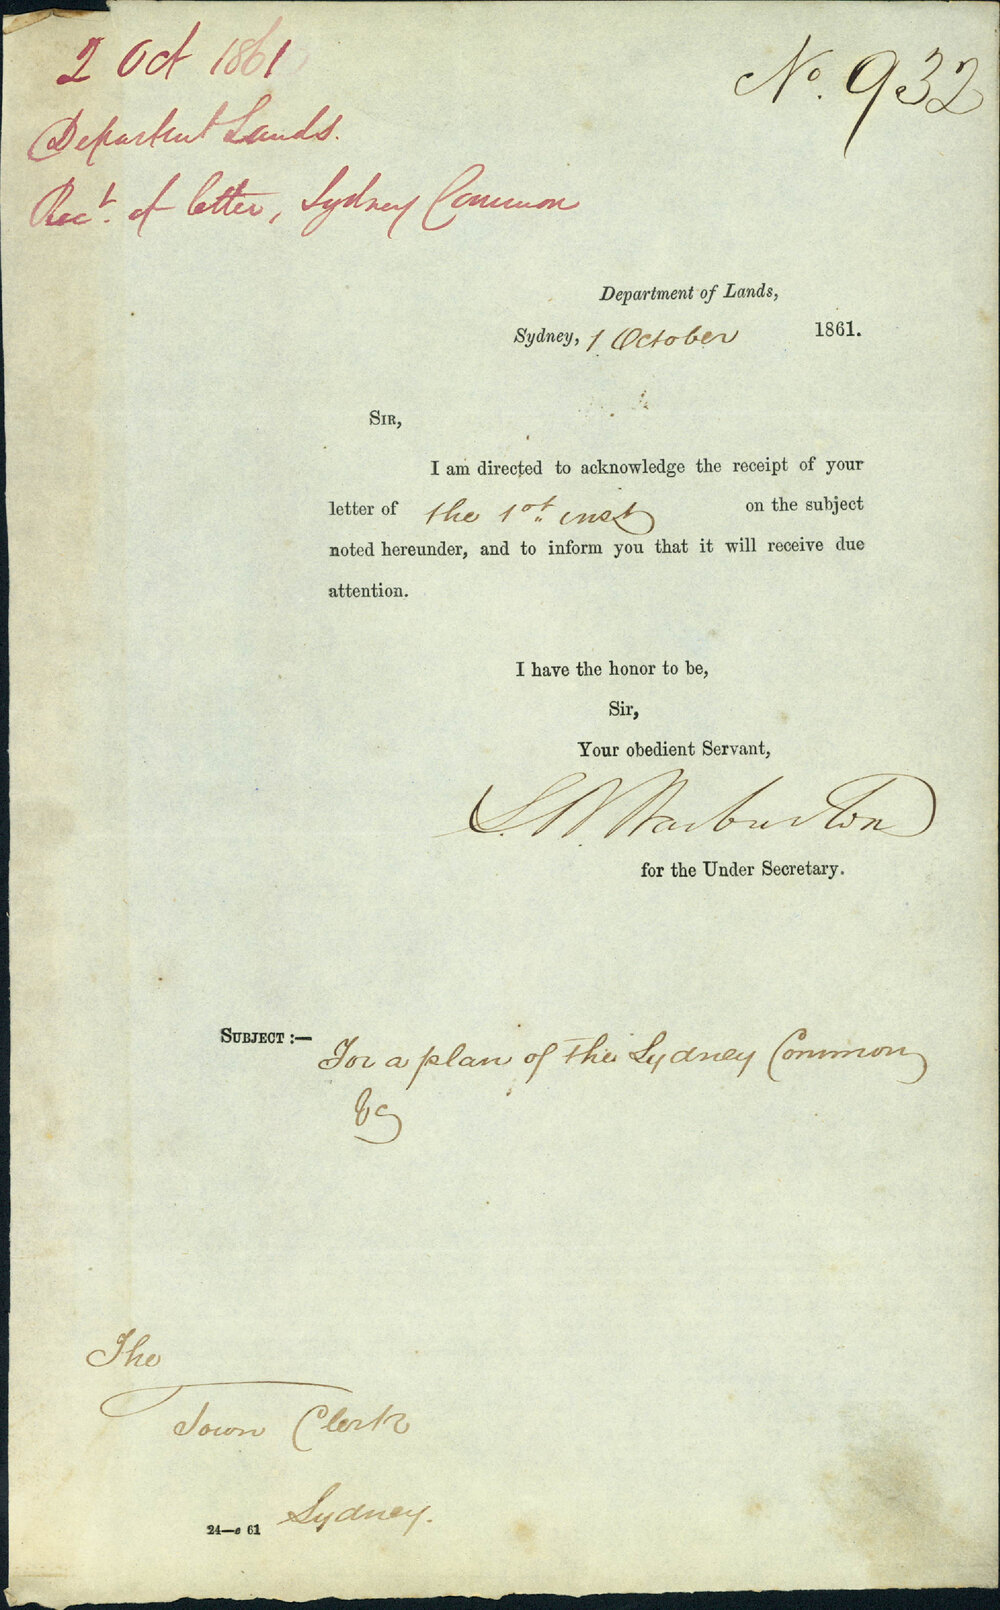 2 Oct 1861
No. 932
Department Lands.
Rect. of letter, Sydney Common
Department of Lands,
Sydney, 1 October 1861.
SIR,
I am directed to acknowledge the receipt of your
letter of the 1st inst on the subject
noted hereunder, and to inform you that it will receive due
attention.
I have the honor to be,
Sir,
Your obedient Servant,
Warburton
for the Under Secretary.
SUBJECT :— For a plan of the Sydney Common
&c
The
Town Clerk
Sydney.
24—e 61